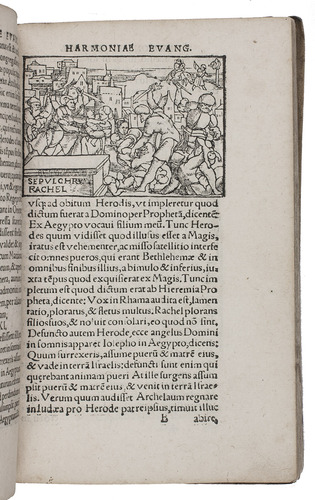 HARMONIAE EVANG.
SEPVLCHRV
RACHEL
vsq; ad obitum Herodis, vt impleretur quod
dictum fuerat a Domino per Prophetã, dicentẽ
Ex Aegypto vocaui filium meũ. Tunc Hero-
des quum vidisset quod illusus esset a Magis,
iratus est vehementer, ac misso satellitio interfe
cit omnes pueros, qui erant Bethlehemæ & in
omnibus finibus illius, a bimulo & inferius, iu-
xta tẽpus quod exquisiferat ex Magis. Tunc im
pletum est quod dictum erat ab Hieremia Pro
pheta, dicente; Vox in Rhama audita est, lamen
ratio, ploratus, & fletus multus. Rachel plorans
filios suos, & noluit consolari, eo quod nõ sint.
Defuncto autem Herode, ecce angelus Domini
in somnis apparet Iosepho in Aegypto, dicens;
Quum surrexeris, assume puerũ & matrẽ eius,
& vade in terrã Israelis; defuncti sunt enim qui
querebant animam pueri At ille surgens assum
plit puerũ & matrẽ eius, & venit in terrã Israe-
lis. Verum quum audisset Archelaum regnare
in Iudæa pro Herode patre ipsius, timuit illuc
B abire,